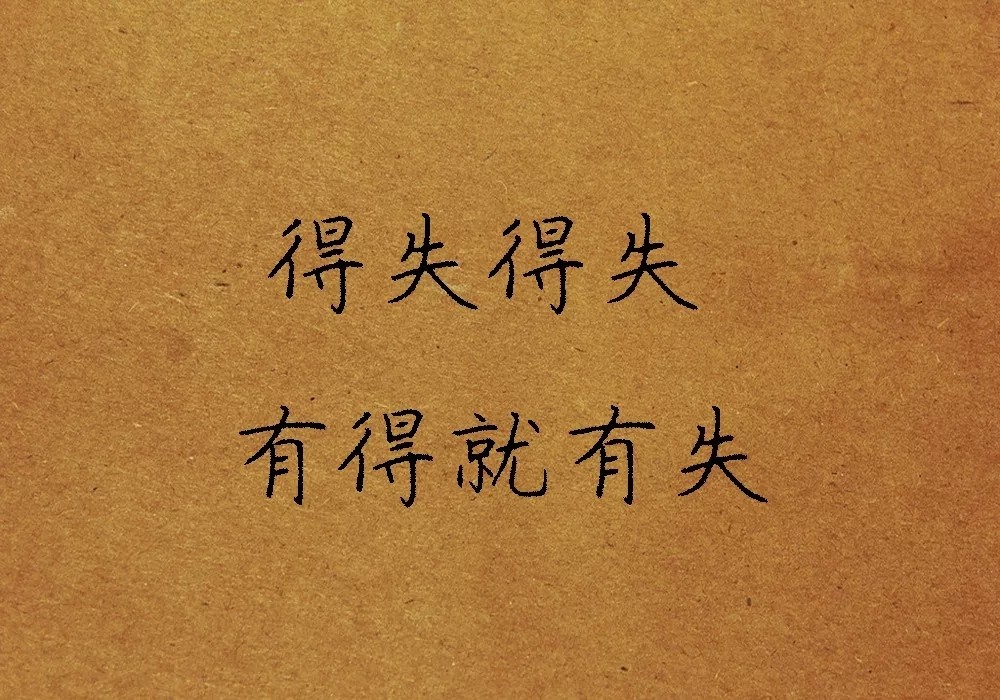 得失得失
有得就有失